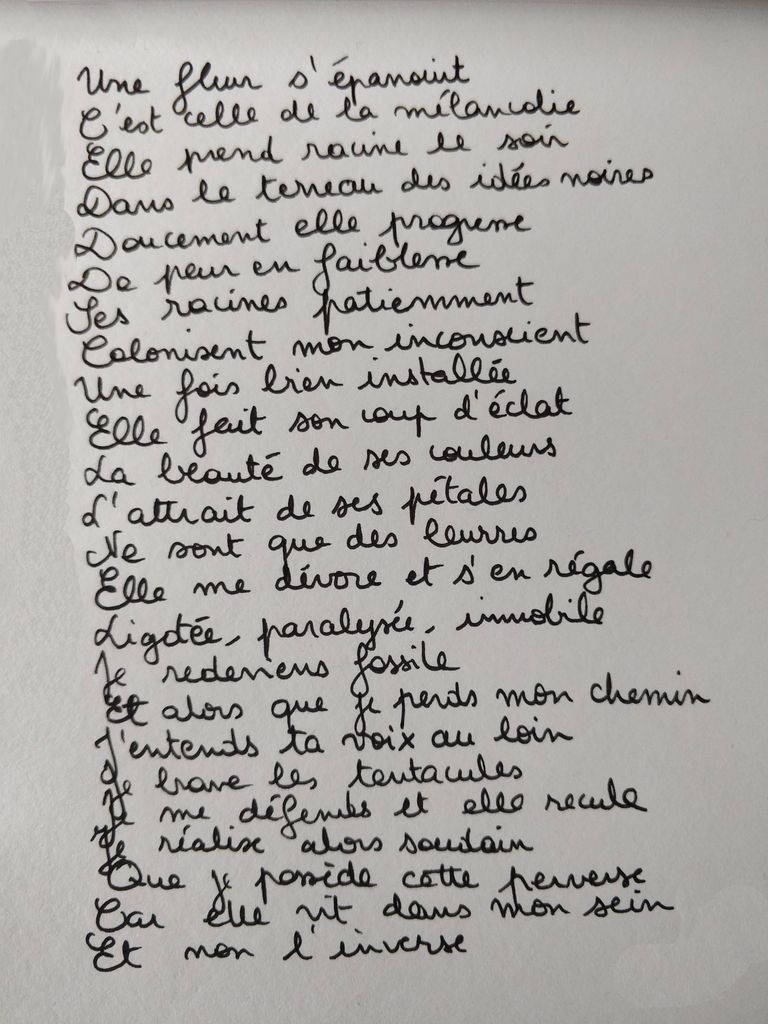 Une fleur s'épanouit
C'est celle de la mélancolie
Elle prend racine le soir
Dans le terreau des idées noires
Doucement elle progresse
De peur en faiblesse
Ses racines patiemment
Colonisent mon inconscient
Une fois bien installée
Elle fait son coup d'éclat
La beauté de ses couleurs
L'attrait de ses pétales
Ne sont que des leurres
Elle me dévore et s'en régale
Ligotée, paralysée, immobile
Je redeviens fossile
Et alors que je perds mon chemin
J'entends ta voix au loin
Je brave les tentacules
Je me défends et elle recule
Je réalise alors soudain
Que je possède cette perverse
Car elle vit dans mon sein
Et non l'inverse